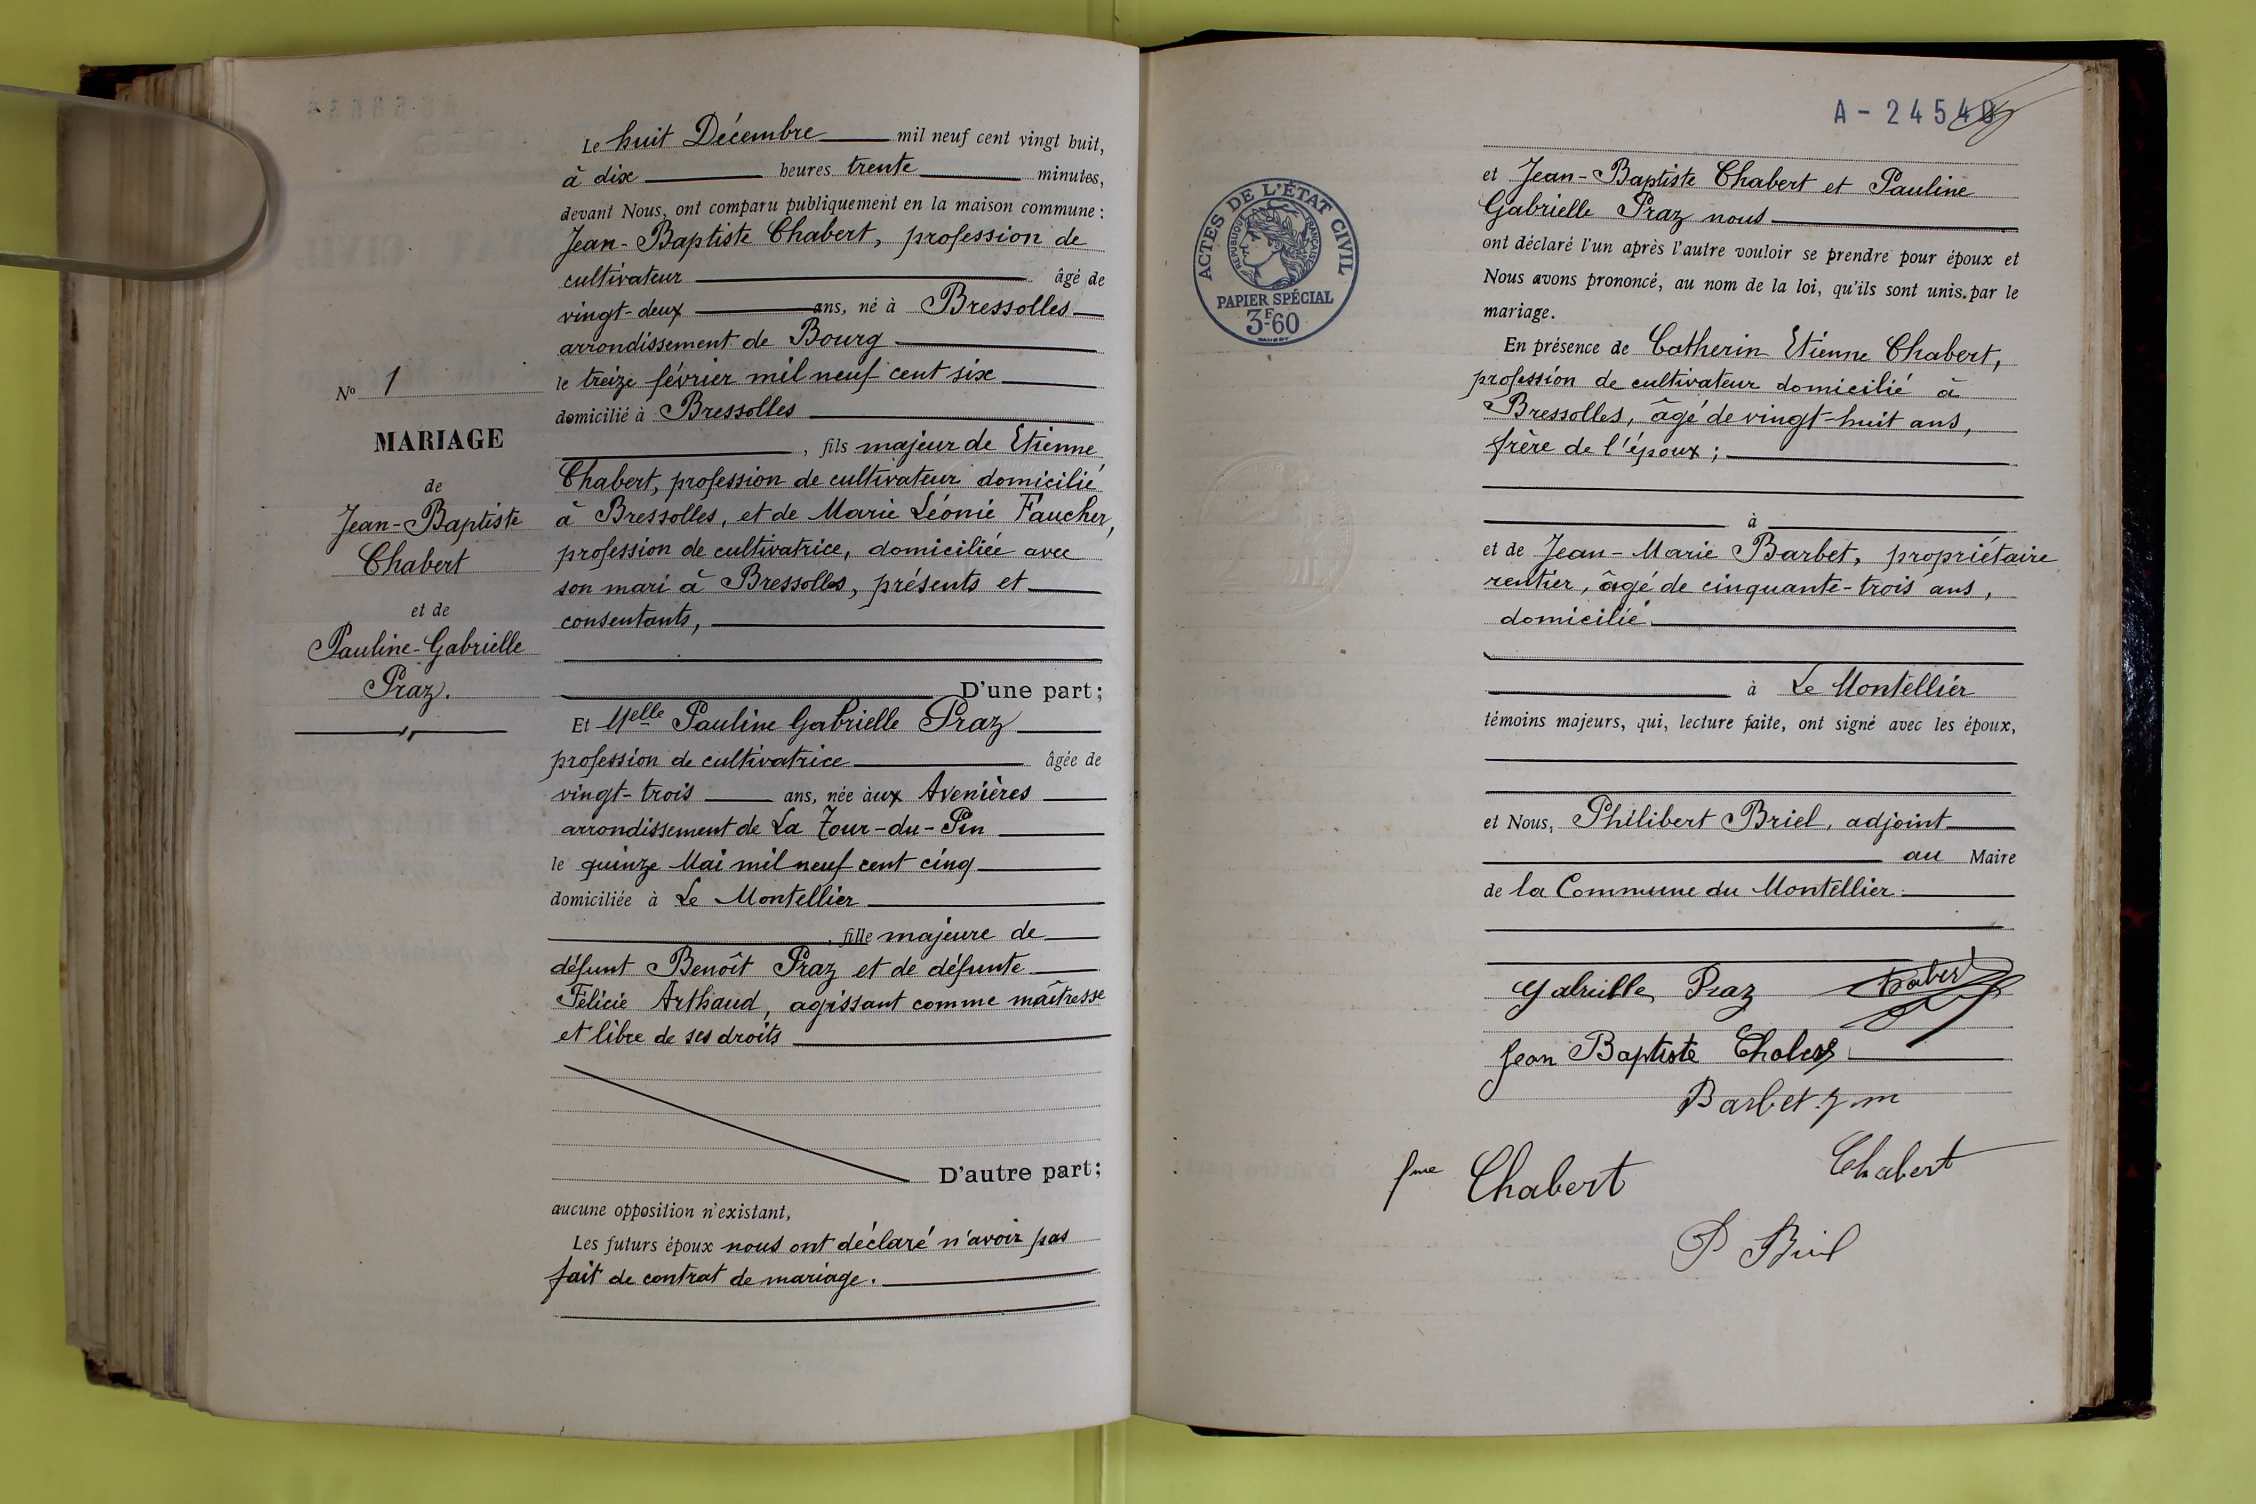 Le huit Décembre mil neuf cent vingt huit,
à dix heures trente minutes,
devant Nous, ont comparu publiquement en la maison commune :
Jean-Baptiste Chabert, profession de
cultivateur âgé de
vingt-deux ans, né à Bressolles
arrondissement de Bourg
le treize février mil neuf cent six
domicilié à Bressolles
, fils majeur de Etienne
Chabert, profession de cultivateur domicilié
à Bressolles, et de Marie Léonie Faucher,
profession de cultivatrice, domiciliée avec
son mari à Bressolles, présents et
consentants,
D'une part ;
Et Melle Pauline Gabrielle Praz
profession de cultivatrice âgée de
vingt-trois ans, née aux Avenières
arrondissement de La Tour-du-Pin
le quinze Mai mil neuf cent cinq
domiciliée à Le Montellier
, fille majeure de
défunt Benoît Praz et de défunte
Félicie Arthaud, agissant comme maîtresse
et libre de ses droits
D'autre part ;
aucune opposition n'existant,
Les futurs époux nous ont déclaré n'avoir pas
fait de contrat de mariage.
No 1
MARIAGE
de
Jean-Baptiste
Chabert
et de
Pauline-Gabrielle
Praz.
A - 2454
ACTES DE L'ÉTAT CIVIL
RÉPUBLIQUE FRANÇAISE
PAPIER SPÉCIAL
3F-60
et Jean-Baptiste Chabert et Pauline
Gabrielle Praz nous
ont déclaré l'un après l'autre vouloir se prendre pour époux et
Nous avons prononcé, au nom de la loi, qu'ils sont unis par le
mariage.
En présence de Catherin Etienne Chabert,
profession de cultivateur domicilié à
Bressolles, âgé de vingt-huit ans,
frère de l'époux ;
à
et de Jean-Marie Barbet, propriétaire
rentier, âgé de cinquante-trois ans,
domicilié
à Le Montellier
témoins majeurs, qui, lecture faite, ont signé avec les époux,
et Nous, Philibert Briel, adjoint
au Maire
de la Commune du Montellier.
Gabrielle Praz Chabert
Jean Baptiste Chabert
Barbet J m
fme Chabert Chabert
P Briel